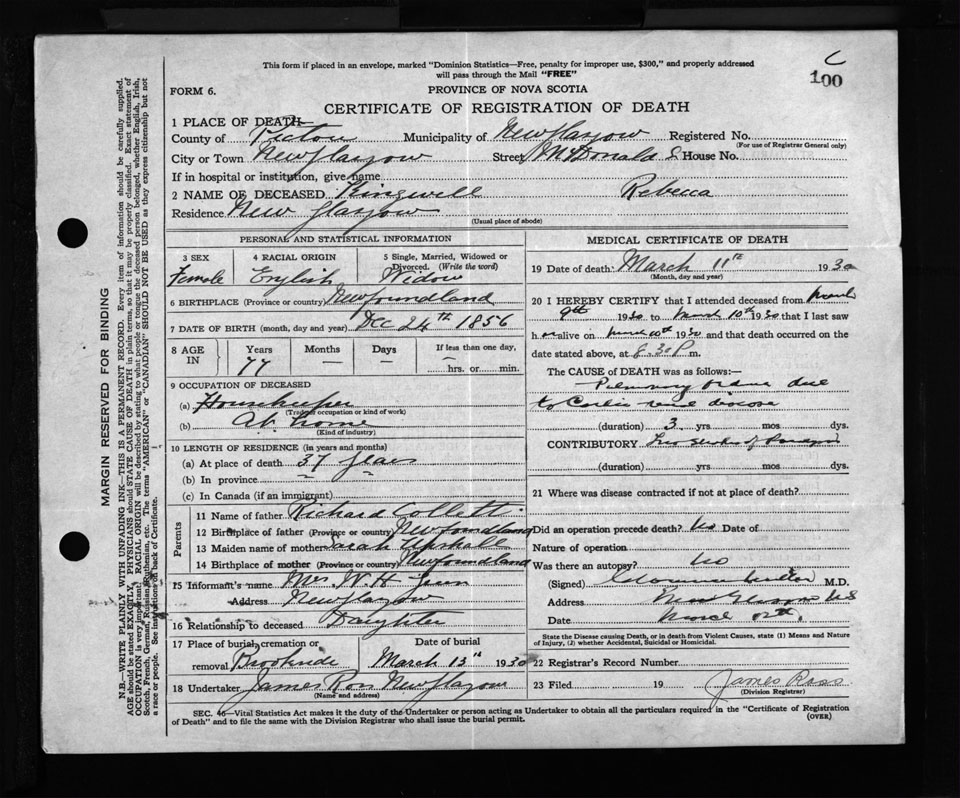 This form if placed in an envelope, marked "Dominion Statistics—Free, penalty for improper use, $300," and properly addressed
will pass through the Mail "FREE"
C
100
FORM 6.
PROVINCE OF NOVA SCOTIA
CERTIFICATE OF REGISTRATION OF DEATH
1 PLACE OF DEATH
County of Pictou Municipality of New Glasgow Registered No.
(For use of Registrar General only)
City or Town New Glasgow Street McDonald S House No.
If in hospital or institution, give name
2 NAME OF DECEASED Kingwell Rebecca
Residence New Glasgow
(Usual place of abode)
PERSONAL AND STATISTICAL INFORMATION
3 SEX 4 RACIAL ORIGIN 5 Single, Married, Widowed or
Divorced. (Write the word)
Female English Widow
6 BIRTHPLACE (Province or country) Newfoundland
7 DATE OF BIRTH (month, day and year) Dec 24th 1856
8 AGE IN Years Months Days If less than one day,
77 — — — hrs. or min.
9 OCCUPATION OF DECEASED
(a) Housekeeper
(Trade, occupation or kind of work)
(b) At home
(Kind of industry)
10 LENGTH OF RESIDENCE (in years and months)
(a) At place of death 37 years
(b) In province
(c) In Canada (if an immigrant)
Parents
11 Name of father Richard Collett
12 Birthplace of father (Province or country) Newfoundland
13 Maiden name of mother Sarah Upshall
14 Birthplace of mother (Province or country) Newfoundland
15 Informant's name Mrs. W. H.
Address New Glasgow
16 Relationship to deceased Daughter
17 Place of burial, cremation or Date of burial
removal Brookside March 13th 1930
18 Undertaker James Ross New Glasgow
(Name and address)
MEDICAL CERTIFICATE OF DEATH
19 Date of death: March 11th 1930
(Month, day and year)
20 I HEREBY CERTIFY that I attended deceased from March
9th 1930 to March 10th 1930 that I last saw
h er alive on March 10th 1930 and that death occurred on
date stated above, at 8.30 P. m.
The CAUSE of DEATH was as follows:—
Pulmonary due
to disease
(duration) 3 yrs mos dys.
CONTRIBUTORY Two Strokes of
(duration) yrs mos dys.
21 Where was disease contracted if not at place of death?
Did an operation precede death? No Date of
Nature of operation
Was there an autopsy? No
(Signed) M.D.
Address New Glasgow NS
Date March
State the Disease causing Death, or in death from Violent Causes, state (1) Means and Nature
of Injury, (2) whether Accidental, Suicidal or Homicidal.
22 Registrar's Record Number
23 Filed 19 James Ross
(Division Registrar)
SEC. 46—Vital Statistics Act makes it the duty of the Undertaker or person acting as Undertaker to obtain all the particulars required in the "Certificate of Registration
of Death" and to file the same with the Division Registrar who shall issue the burial permit.
(OVER)
MARGIN RESERVED FOR BINDING
N.B.—WRITE PLAINLY WITH UNFADING INK—THIS IS A PERMANENT RECORD. Every item of information should be carefully supplied.
AGE should be stated EXACTLY. PHYSICIANS should STATE CAUSE OF DEATH in plain terms, so that it may be properly classified. Exact statement of
OCCUPATION is very important. RACIAL ORIGIN will be described by stating to what people or tongue the deceased person belonged, whether English, Irish,
Scotch, French, German, Russian, Ruthenian, etc. The terms "AMERICAN" or "CANADIAN" SHOULD NOT BE USED as they express citizenship but not
a race or people. See instructions on back of Certificate.